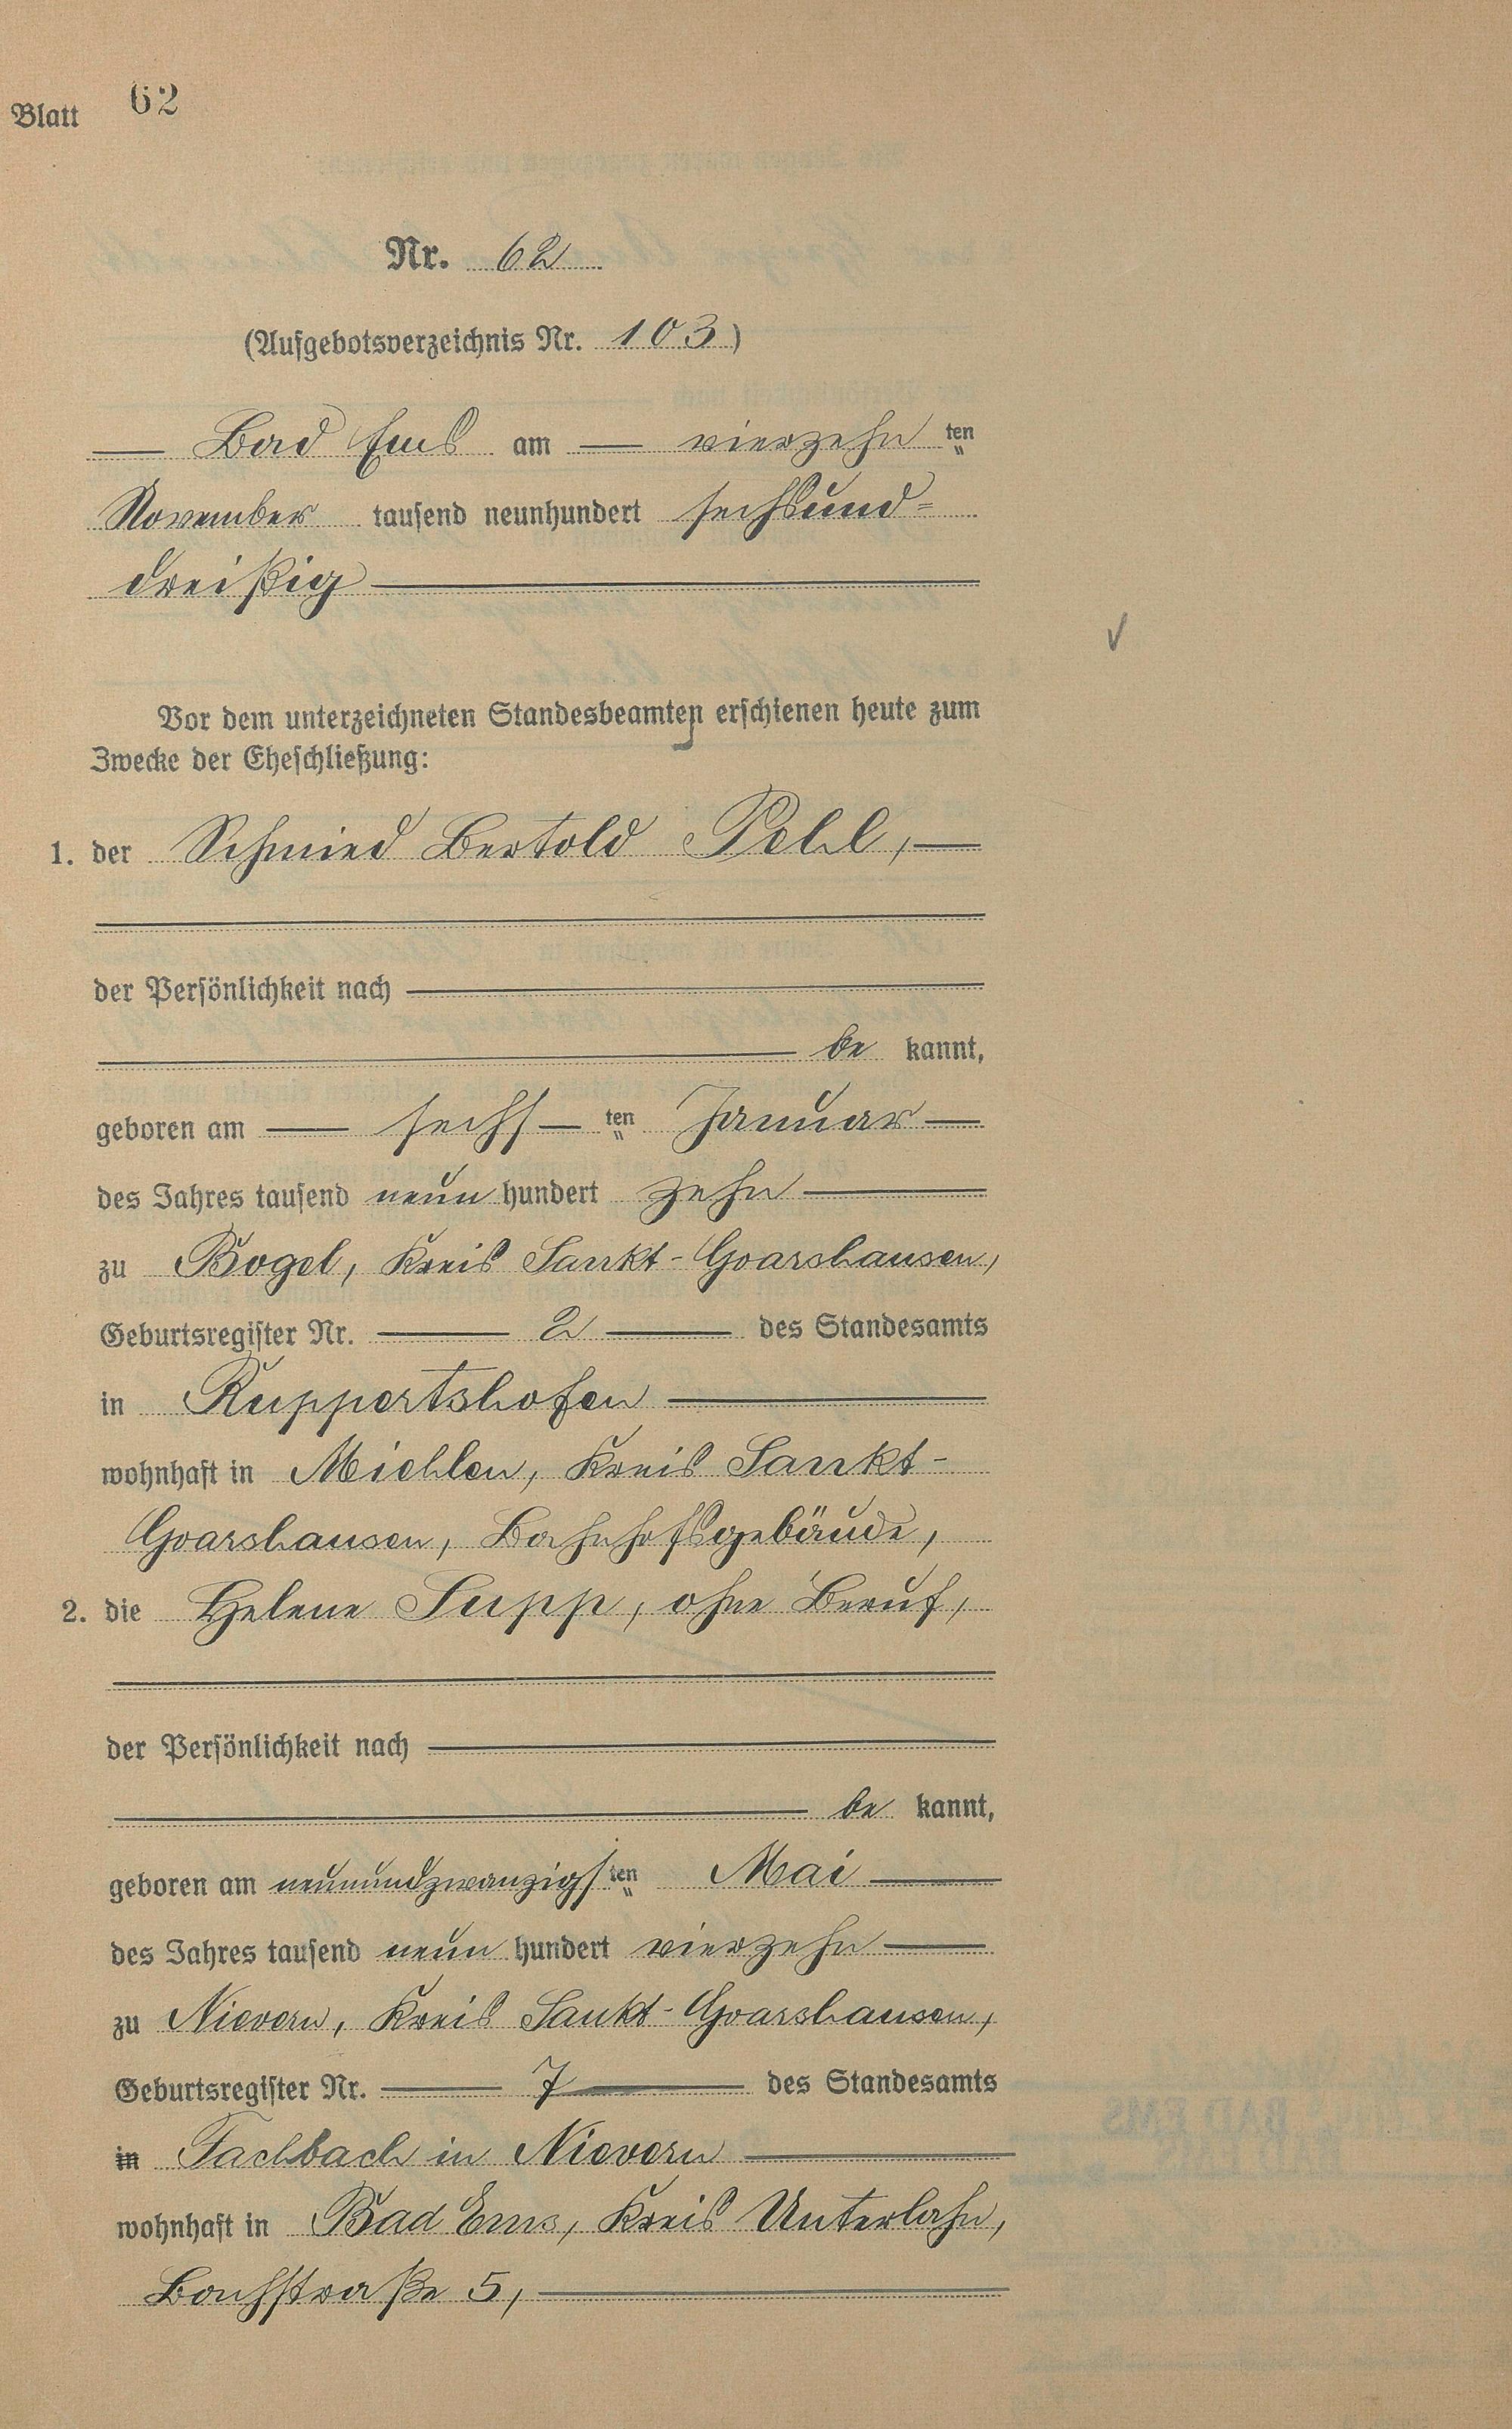 Blatt 62
Nr. 62
(Aufgebotsverzeichnis Nr. 103)
Bad Ems am vierzehn ten
November tausend neunhundert sechsund=
dreißig
Vor dem unterzeichneten Standesbeamten erschienen heute zum
Zwecke der Eheschließung:
1. der Schmied Bertold Pehl,
der Persönlichkeit nach
be kannt,
geboren am sechs ten Januar
des Jahres tausend neun hundert zehn
zu Bogel, Kreis Sankt-Goarshausen,
Geburtsregister Nr. 2 des Standesamts
in Ruppertshofen
wohnhaft in Miehlen, Kreis Sankt-
Goarshausen, Bahnhofsgebäude,
2. die Helene Supp, ohne Beruf,
der Persönlichkeit nach
be kannt,
geboren am neunundzwanzigs ten Mai
des Jahres tausend neun hundert vierzehn
zu Nievern, Kreis Sankt-Goarshausen,
Geburtsregister Nr. 7 des Standesamts
in Fachbach in Nievern
wohnhaft in Bad Ems, Kreis Unterlahn,
Bachstraße 5,